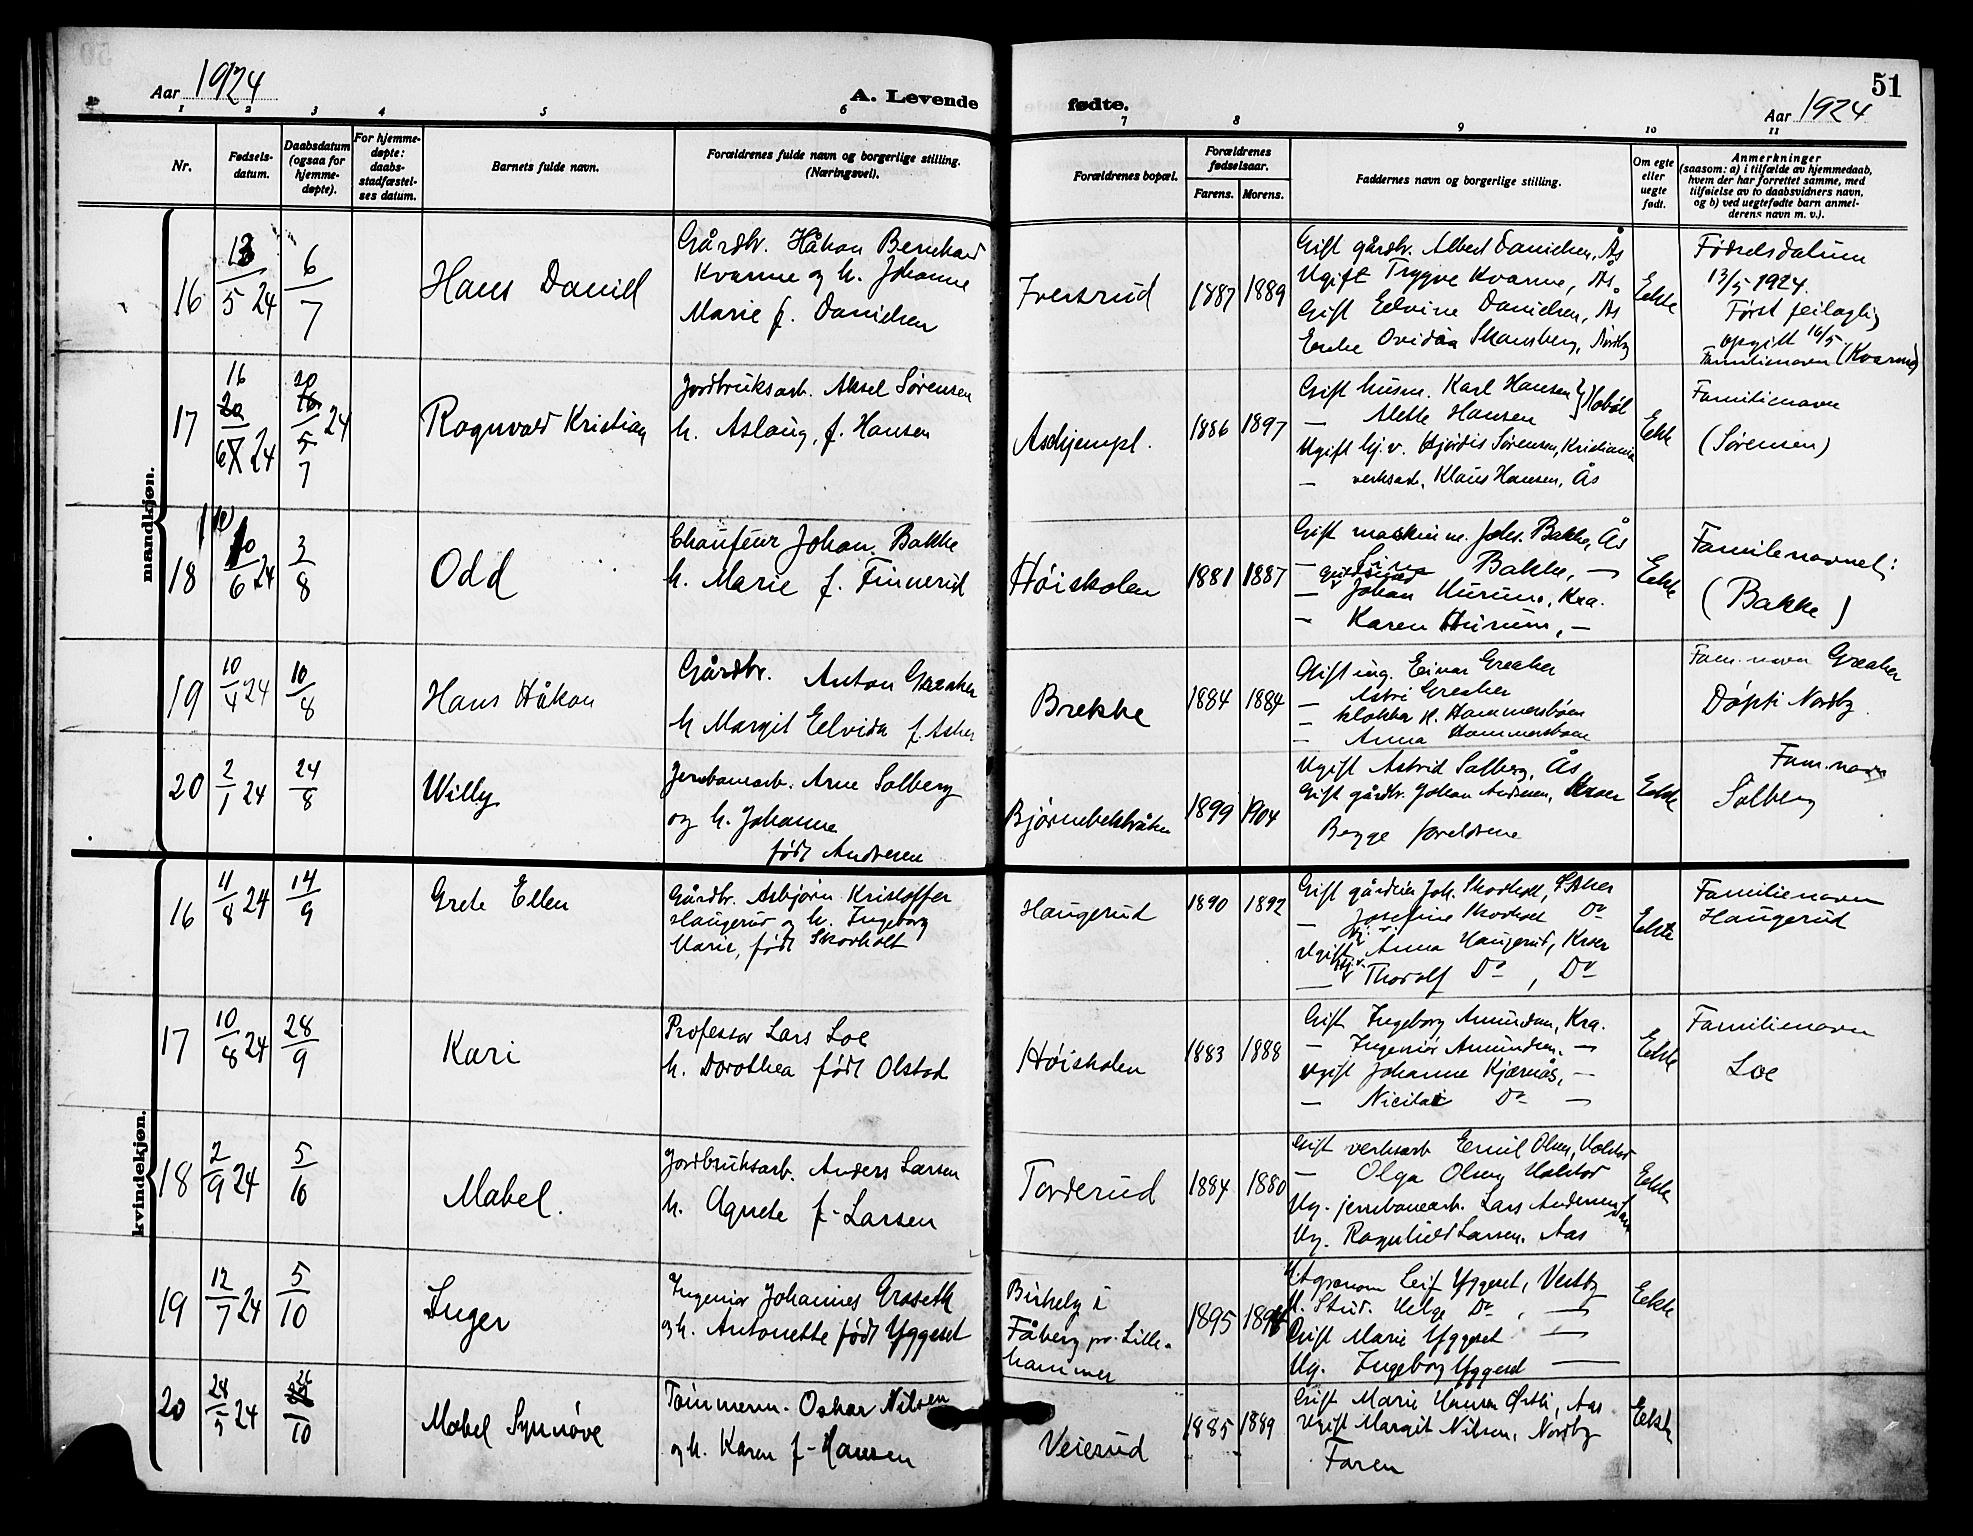 Aar 1924
A. Levende
fødte.
Aar 1924
51
1 2 3 4 5 6 7 8 9 10 11
Nr.
Fødsels-
datum.
Daabsdatum
(ogsaa for
hjemme-
døpte).
For hjemme-
døpte:
daabs-
stadfæstel-
ses datum.
Barnets fulde navn.
Forældrenes fulde navn og borgerlige stilling.
(Næringsvei).
Forældrenes bopæl.
Forældrenes
fødselsaar.
Farens. Morens.
Faddernes navn og borgerlige stilling.
Om egte
eller
uegte
født.
Anmerkninger
(saasom: a) i tilfælde av hjemmedaab,
hvem der har forrettet samme, med
tilføielse av to daabsvidners navn,
og b) ved uegtefødte barn anmel-
derens navn m. v.).
mandkjøn.
16
13/5 24
6/7
Hans Daniel
Gårdbr. Håkon Bernhard
Kvarme og h. Johanne
Marie f. Danielsen
Iversrud
1887 1889
Gift gårdbr. Albert Danielsen, Ås
Ugift Trygve Kvarme, Ås.
Gift Edvine Danielsen, Ås
Enke Ovidia Skansberg, Nordby
Ekte
Fødselsdatum
13/5 1924.
Først feilagtig
opgitt 16/5
Familienavn (Kvarme)
17
16
20
6/7 24
20
16/5 24
7
Ragnvald Kristian
Jordbruksarb. Aksel Sørensen
h. Aslaug, f. Hansen
Askjempl.
1886 1897
Gift husm. Karl Hansen } Hobøl
— Alette Hansen
Ugift hj.v. Hjördis Sørensen, Kristiania
— verksarb. Klaus Hansen, Ås
Ekte
Familienavn
(Sørensen)
18
10/6 24
3/8
Odd
Chauffeur Johan Bakke
h. Marie f. Finnerud
Høiskolen
1881 1887
Gift maskinm. Johs. Bakke, Ås
— Bakke, —
— Johan Hurum, Kra.
— Karen Hurum, —
Ekte
Familienavnet:
(Bakke)
19
10/4 24
10/8
Hans Håkon
Gårdbr. Anton Greaker
h Margit Elvida f. Asker
Brekke
1884 1884
Gift ing. Einar Greaker
— Astri Greaker
— klokker H. Hammersbøen
— Anna Hammersbøen
Fam. navn Greaker
Døpt i Nordby.
20
2/1 24
24/8
Willy
Jernbanearb. Arne Solberg
og h. Johanne
født Andresen
Bjørnebekkbråten
1899 1904
Ugift Astrid Solberg, Ås
Gift gårdbr. Johan Andresen, Kroer
Begge foreldrene
Ekte
Fam. navn
Solberg
kvindekjøn.
16
11/8 24
14/9
Grete Ellen
Gårdbr. Asbjørn Kristoffer
Haugerud og h. Ingeborg
Marie, født Skorholt
Haugerud
1890 1892
Gift gårdeier Joh. Skorholt,
— Josefine Skorholt Do
Ugift Anna Haugerud, Kroer
— Thoralf Do, Do
Ekte
Familienavn
Haugerud
17
10/8 24
28/9
Kari
Professor Lars Loe
h. Dorothea født Olstad
Høiskolen
1883 1888
Gift Ingeborg Amundsen, Kra.
— Ingeniør Amundsen. —
Ugift Johanne Kjærnås, —
— Nicilai Do —
Ekte
Familienavn
Loe
18
2/9 24
5/10
Mabel.
Jordbruksarb. Anders Larsen
h. Agnete f. Larsen
Torderud
1884 1880
Gift verksarb Emil Olsen, Holstad
— Olga Olsen Holstad
Ug. jernbanearb. Lars Andersen
Ug. Ragnhild Larsen. Aas
Ekte
19
12/7 24
5/10
Inger
Ingeniør Johannes Grøseth
og h. Antonette født Yggeset
Birkely i
Fåberg pr. Lille-
hammer
1895
Leif Yggeset, Vestby
U. Stud. Helge Do, —
Gift Marie Yggeset —
Ug. Ingeborg Yggeset —
Ekte
20
24/5 24
26/10
Mabel Synnøve
Tømmerm. Oskar Nilsen
og h. Karen f. Hansen
Veierud
1885 1889
Gift Marie Hansen Østli, Aas
Ugift Margit Nilsen, Nordby
Faren
Ekte